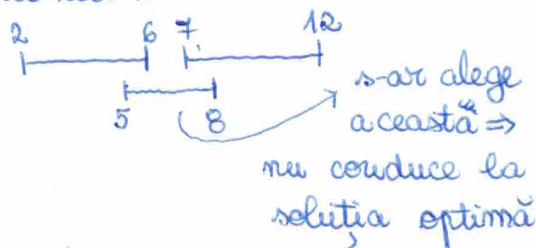 2 6 7 12
5 8
s-ar alege
această ⇒
nu conduce la
soluția optimă